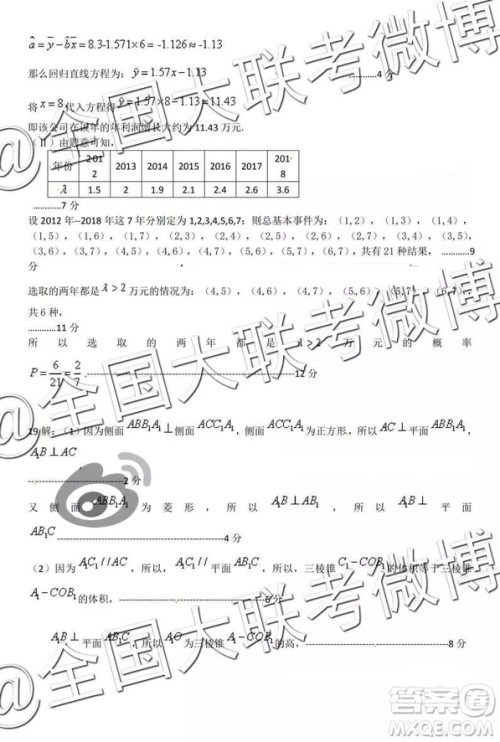 â = ȳ - b̂x̄ = 8.3-1.571×6 = -1.126 ≈ -1.13
那么回归直线方程为: ŷ = 1.57x-1.13 …………4分
将 x = 8 代入方程得 ŷ = 1.57×8-1.13 = 11.43
即该公司在该年的年利润增长大约为 11.43 万元.
(Ⅱ) 由题意可知,
年份 2012 2013 2014 2015 2016 2017 2018
λ 1.5 2 1.9 2.1 2.4 2.6 3.6
…………7分
设 2012 年--2018 年这 7 年分别定为 1,2,3,4,5,6,7; 则总基本事件为: (1,2), (1,3), (1,4),
(1,5), (1,6), (1,7), (2,3), (2,4), (2,5), (2,6), (2,7), (3,4), (3,5),
(3,6), (3,7), (4,5), (4,6), (4,7), (5,6), (5,7), (6,7), 共有 21 种结果, …………9
分
选取的两年都是 λ > 2 万元的情况为: (4,5), (4,6), (4,7), (5,6), (5,7), (6,7),
共 6 种,
…………11 分
所以选取的两年都是 λ > 2 万元的概率
P = 6/21 = 2/7 . ……………………12 分
19解: (1) 因为侧面 ABB₁A₁ ⊥ 侧面 ACC₁A₁, 侧面 ACC₁A₁ 为正方形, 所以 AC ⊥ 平面 ABB₁A₁,
A₁B ⊥ AC,
……………………2分
又侧面 ABB₁A₁ 为菱形, 所以 A₁B ⊥ AB₁, 所以 A₁B ⊥ 平面
AB₁C. ……………………4分
(2) 因为 A₁C₁ // AC, 所以, A₁C₁ // 平面 AB₁C, 所以, 三棱锥 C₁-COB₁ 的体积等于三棱锥
A₁-COB₁ 的体积, ……………………6分
A₁B ⊥ 平面 AB₁C, 所以 A₁O 为三棱锥 A₁-COB₁ 的高, ……………………8分
@全国大联考微博
@全国大联考微博
@全国大联考微博
答案圈
MXQE.COM